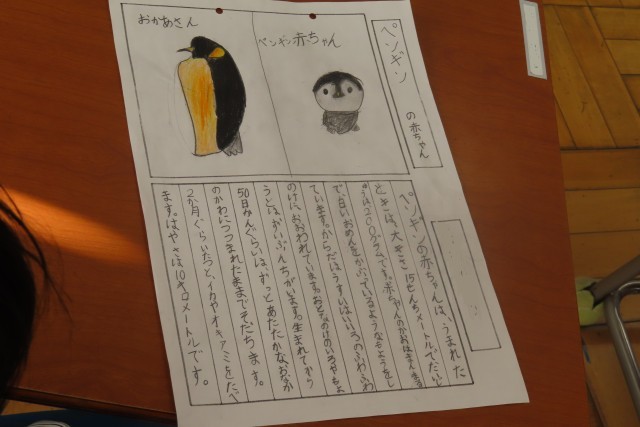 ペンギン
の赤ちゃん
ペンギン赤ちゃん
おかあさん
ペンギンの赤ちゃんは、うまれた
ときは、大きさ15せんちメートルでたいじ
ゅうは、200グラムです。赤ちゃんのかおはまん
で、白いおめんをかぶっているようなもようをし
ています。からだはうすいはいいろのふわふわ
のけに、おおわれています。おとなのけのいろやもよ
うとは、ずいぶんちがいます。生まれてから
50日かんぐらいは、ずっとあたたかなおなか
のかわにつつまれたままでそだちます。
2か月ぐらいたつと、イカやオキアミをたべ
ます。はやさは、10キロメートルです。